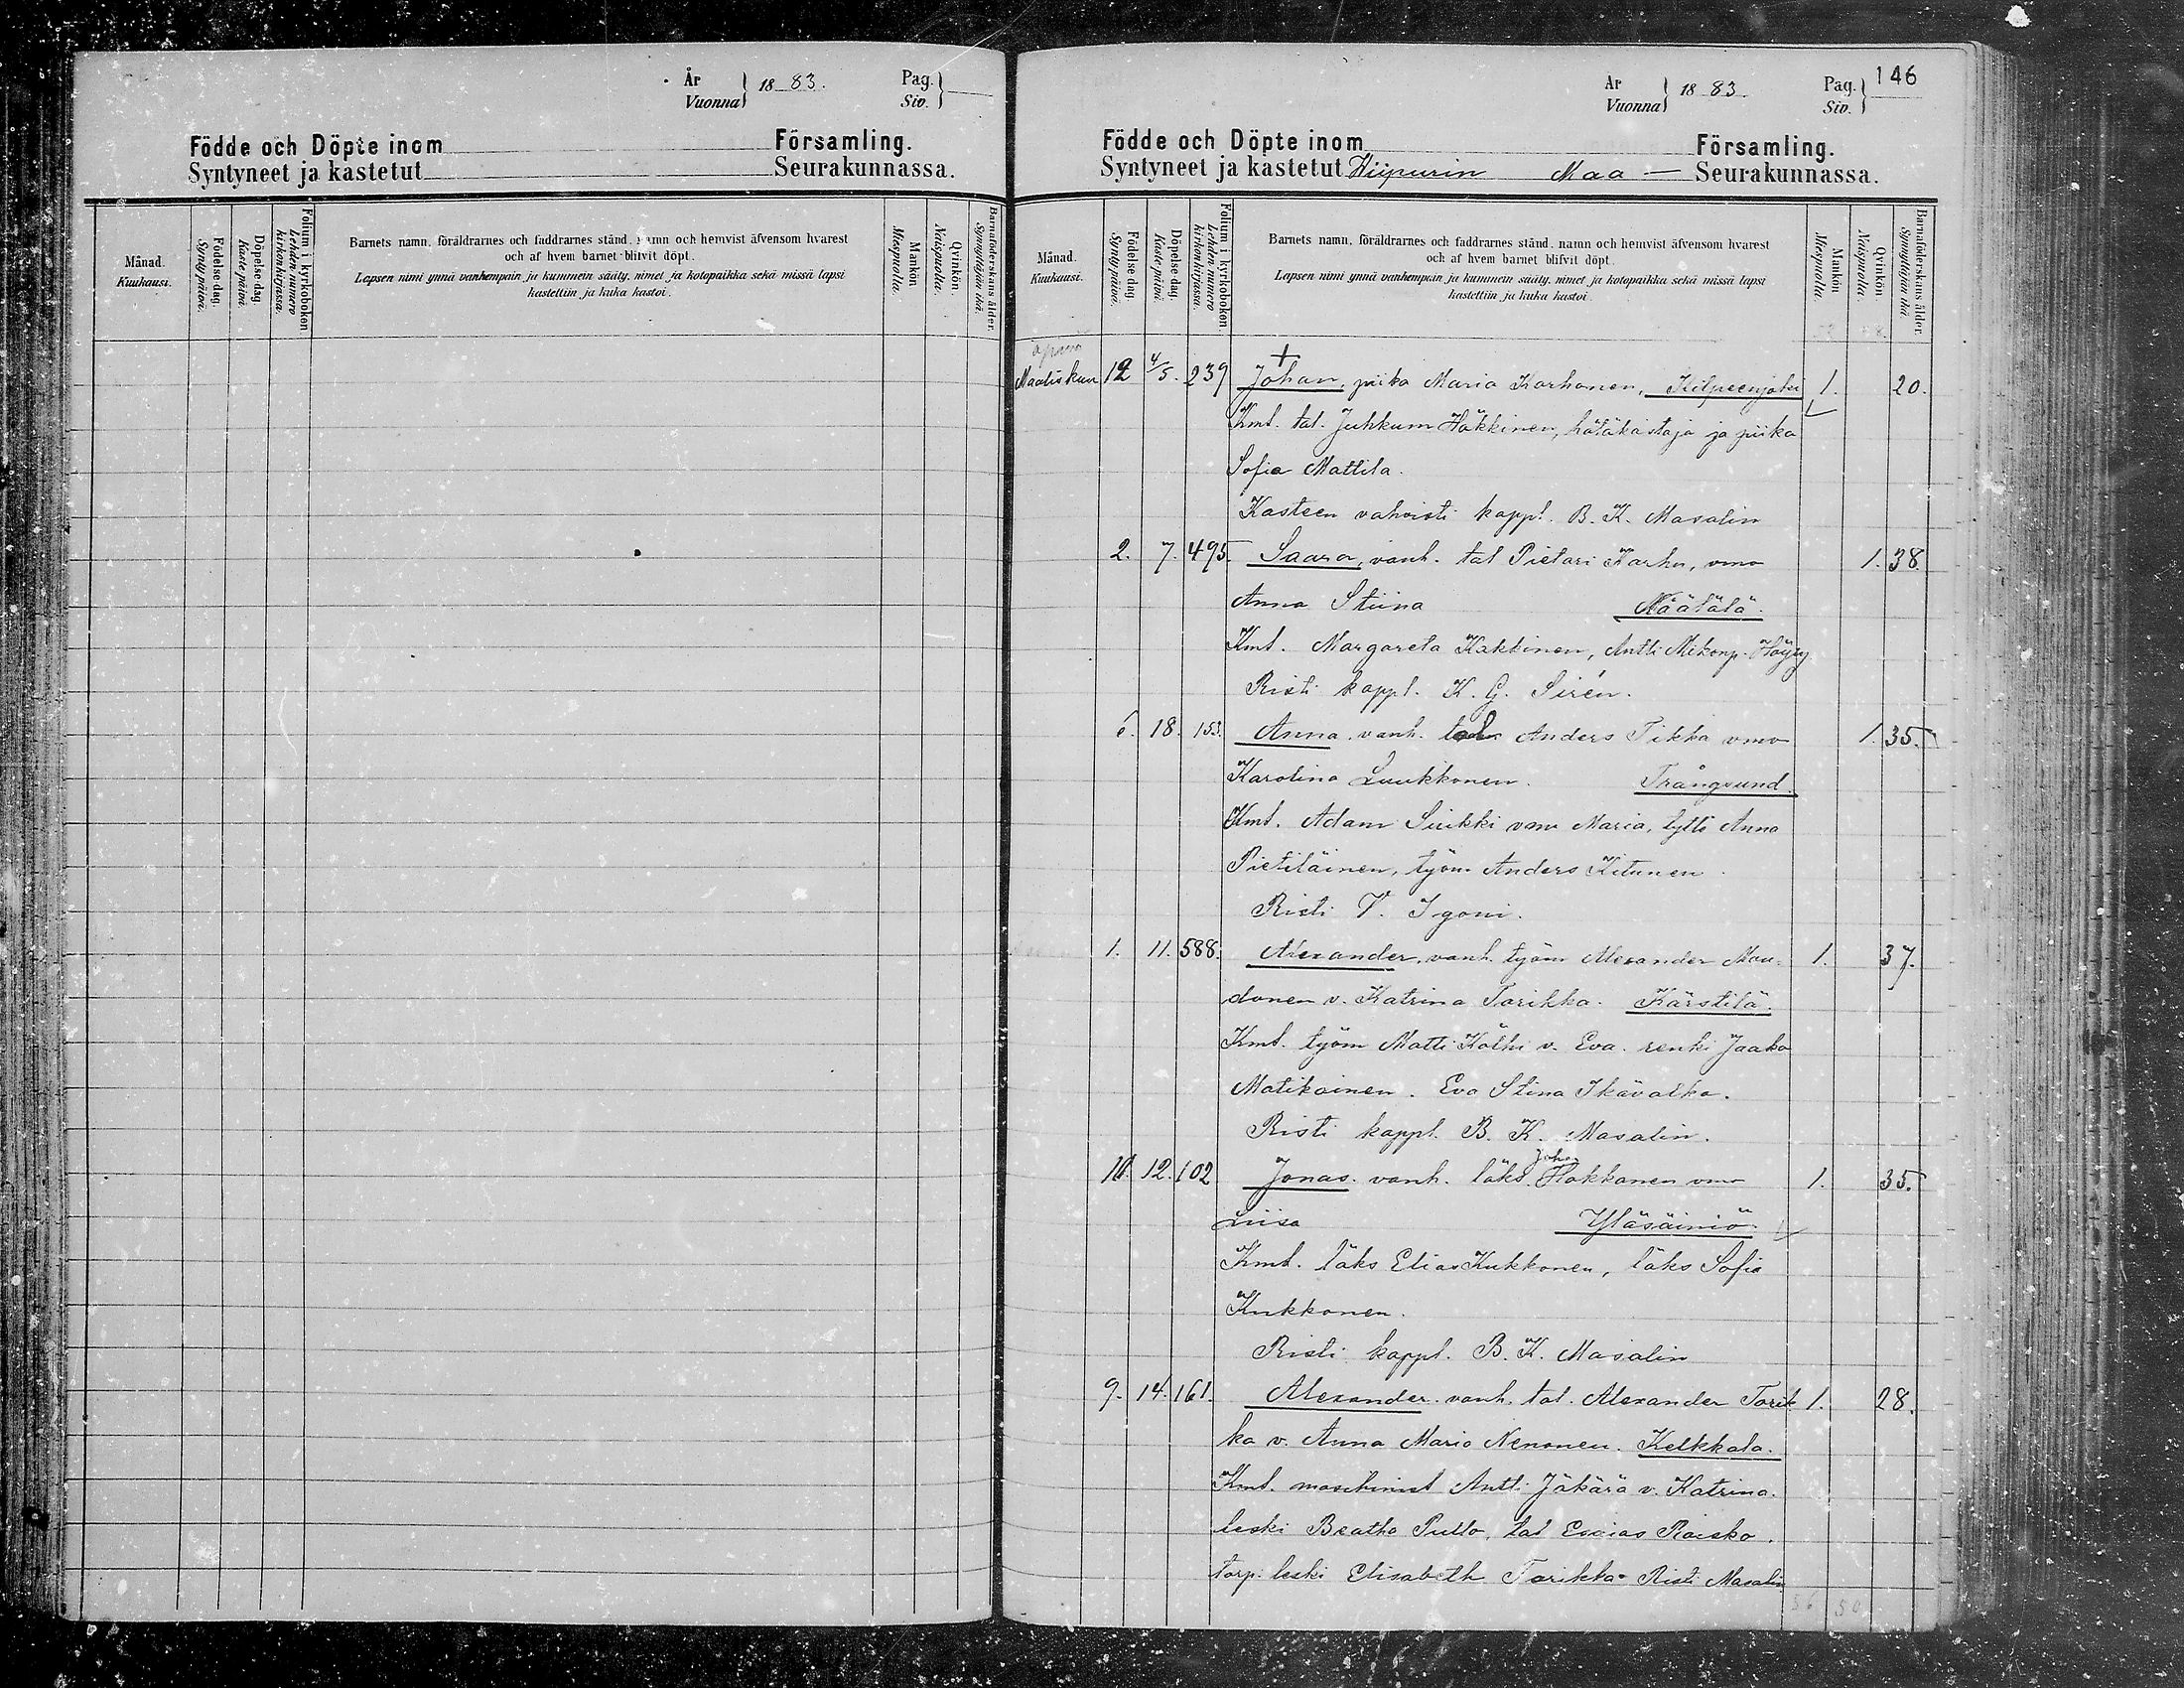 År
Vuonna
18 83.
Pag.
Siv.
Födde och Döpte inom Församling.
Syntyneet ja kastetut Seurakunnassa.
Månad.
Kuukausi.
Födelse dag.
Synty päivä.
Döpelse dag
Kaste päivä.
Folium i kyrkobokon
Lehden numero
kirkonkirjassa.
Barnets namn, föräldrarnes och faddrarnes stånd, namn och hemvist äfvensom hvarest
och af hvem barnet blifvit döpt.
Lapsen nimi ynnä vanhempain ja kummein sääty, nimet ja kotopaikka sekä missä lapsi
kastettiin ja kuka kastoi.
Mankön
Miespuolta.
Qvinkön.
Naispuolta.
Barnaföderskans ålder.
Synnyttäjän ikä.
146
År
Vuonna
18 83.
Pag.
Siv.
Födde och Döpte inom Församling.
Syntyneet ja kastetut Wiipurin Maa — Seurakunnassa.
Månad.
Kuukausi.
Födelse dag.
Synty päivä.
Döpelse dag.
Kaste päivä.
Folium i kyrkobokon
Lehden numero
kirkonkirjassa.
Barnets namn, föräldrarnes och faddrarnes stånd, namn och hemvist äfvensom hvarest
och af hvem barnet blifvit döpt.
Lapsen nimi ynnä vanhempain ja kummein sääty, nimet ja kotopaikka sekä missä lapsi
kastettiin ja kuka kastoi.
Mankön
Miespuolta.
Qvinkön
Naispuolta.
Barnaföderskans ålder.
Synnyttäjän ikä.
Maaliskuu 12 4/5. 239 Johan, piika Maria Karhonen, Kilpeenjoki 1. 20.
Kmt. tal. Juhkum Häkkinen, hätäkastaja ja piika
Sofia Mattila.
Kasteen vahvisti kappl. B. K. Masalin
2. 7. 495. Saara, vanh. tal Pietari Karhu, vmo 1. 38.
Anna Stiina Näätälä.
Kmt. Margareta Kakkinen, Antti Mikonp. Häyry
Risti kappl. K. G. Sirén.
6. 18. 153. Anna, vanh. tal Anders Tikka vmo 1. 35.
Karolina Luukkonen. Trångsund.
Kmt. Adam Sirkki vmo Maria, tytti Anna
Pietiläinen, työm Anders Kitunen.
Risti V. Igoni.
1. 11. 588. Alexander, vanh. työm Alexander Mau- 1. 37.
donen v. Katrina Tarikka. Kärstilä.
Kmt. työm Matti Kölhi v. Eva. renki Jaako
Matikainen. Eva Stina Ikävalko.
Risti kappl. B. K. Masalin.
10. 12. 102 Jonas. vanh. läks. Johan Hakkanen vmo 1. 35.
Liisa Yläsäiniö.
Kmt. läks Elias Kukkonen, läks Sofia
Kukkonen.
Risti kappl. B. K. Masalin
9. 14. 161. Alexander. vanh. tal. Alexander Tarik 1. 28.
ka v. Anna Maria Nenonen. Kelkkala.
Kmt. maschinist Antti Jäkärä v. Katrina.
leski Beatha Pullo, tal Esaias Raisko.
torp. leski Elisabeth Tarikka. Risti Masalin
56 50